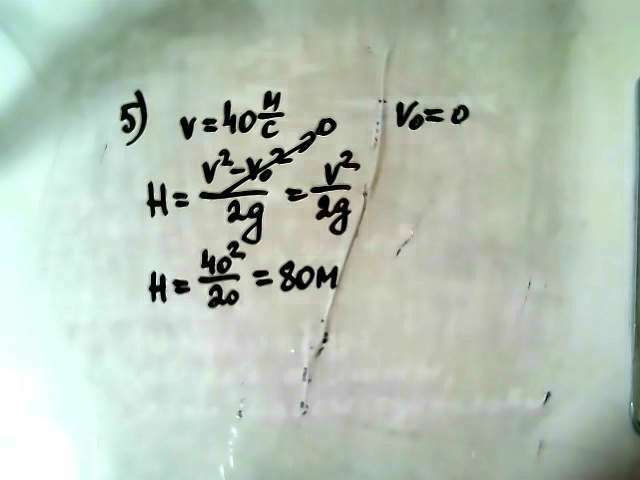 5) v = 40 м/с V₀ = 0
H = (v² - v₀²)/2g = v²/2g 0
H = 40²/20 = 80м